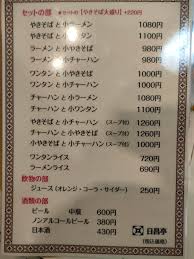 セットの部 ※セットの【やきそば大盛り】+220円
やきそばと小ラーメン 1080円
やきそばと小ワンタン 1080円
ラーメンと小やきそば 980円
ラーメンと小チャーハン 980円
ワンタンと小やきそば 1000円
ワンタンと小チャーハン 1000円
チャーハンと小ラーメン 1100円
チャーハンと小ワンタン 1100円
チャーハンと小やきそば(スープ付) 1260円
やきそばと小チャーハン(スープ付) 1260円
ワンタンライス 690円
ラーメンライス 720円
飲物の部
ジュース(オレンジ・コーラ・サイダー) 250円
酒類の部
ビール 中瓶 600円
ノンアルコールビール 380円
日本酒 430円
日昌亭
(税込価格)